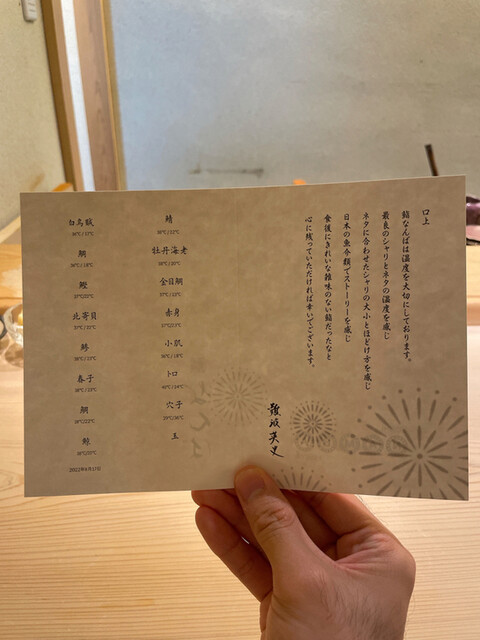 口上
鮨なんばは温度を大切にしております。
最良のシャリとネタの温度を感じ
ネタに合わせたシャリの大小とほどけ方を感じ
日本の魚介類でストーリーを感じ
食後にきれいな雑味のない鮨だったなと
心に残っていただければ幸いでございます。
難波英史
白烏賊
36℃/17℃
鯛
36℃/18℃
鰹
北寄貝
37℃/22℃
鯵
38℃/23℃
春子
38℃/22℃
鯛
38℃/22℃
鯨
38℃/22℃
2022年6月17日
鯖
38℃/22℃
牡丹海老
38℃/20℃
金目鯛
37℃/23℃
赤身
37℃/23℃
小肌
36℃/18℃
トロ
40℃/14℃
穴子
39℃/36℃
玉